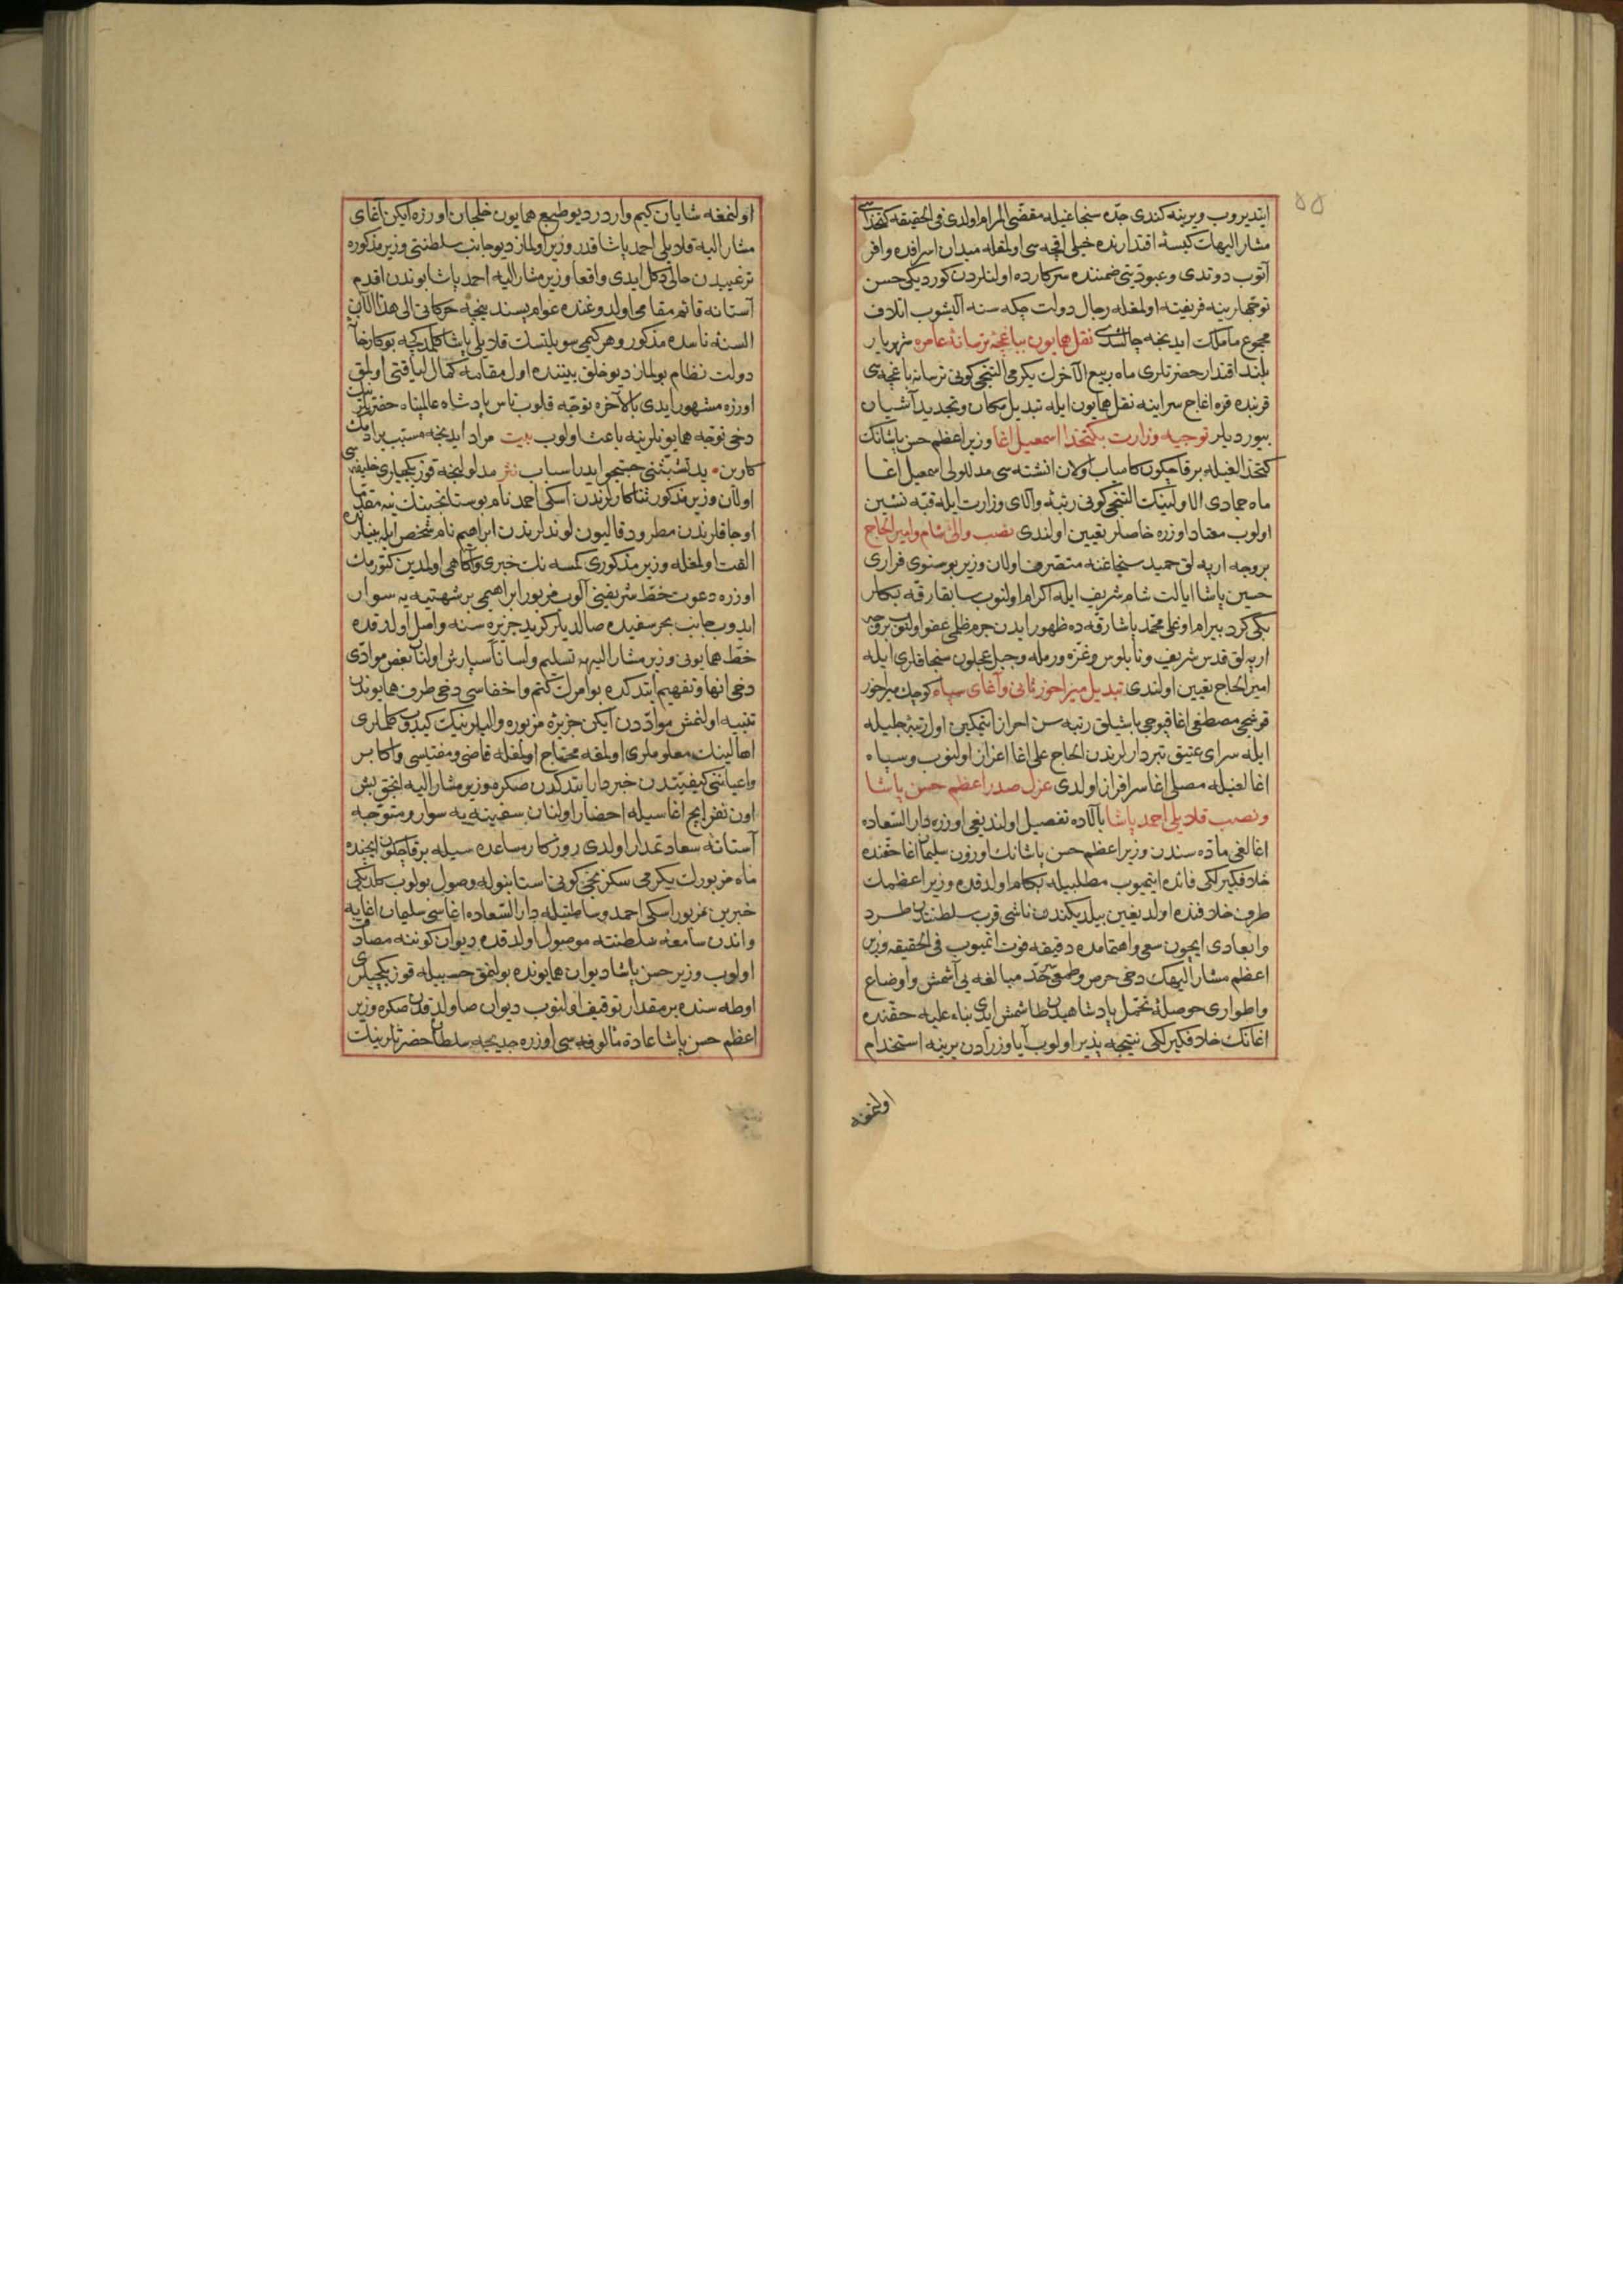 ۵۵
ایتدیروب ویرینه کندی جده سنجاغیله مقضی المرام اولدی فی الحقیقه کتخداسی
مشار الیهک کیسهٔ اقتدارنده خیلی اقچه سی اولمغله میدان اسرافده وافر
آتوب دوتدی وعبودیتی ضمننده سرکارده اولنلردن کوردیکی حسن
توجهلرینه فریفته اولمغله رجال دولت چکه سنه آلیشوب اتلاف
مجموع ماملک ایدنجه چالشدی نقل همایون بباغچهٔ ترسانهٔ عامره شهریار
بلند اقتدار حضرتلری ماه ربیع الآخرک یکرمی التنجی کونی ترسانه باغچه سی
قربنده قره اغاج سراینه نقل همایون ایله تبدیل مکان وتجدید آشیان
بیوردیلر توجیه وزارت بکتخدا اسمعیل اغا وزیر اعظم حسن پاشانک
کتخدالغیله برقاچ کون کامیاب اولان انشته سی مدللولی اسمعیل اغا
ماه جمادی الاولینک التنجی کونی رتبهٔ والای وزارت ایله قبه نشین
اولوب معتاد اوزره خاصلر تعیین اولندی نصب والی شام وامیر الحاج
بروجه ارپه لق حمید سنجاغنه متصرف اولان وزیر بوسنوی فراری
حسین پاشا ایالت شام شریف ایله اکرام اولنوب سابقا رقه بکلر
بکی کرد بیرام اوغلی محمد پاشا رقه ده ظهور ایدن جرم ظلمی عفو اولنوب بروجه
ارپه لق قدس شریف ونابلوس وغزه ورمله وجبل عجلون سنجاقلری ایله
امیر الحاج تعیین اولندی تبدیل میراخور ثانی وآغای سپاه کوچک میراخور
قوشجی مصطفی اغا قپوجی باشیلق رتبه سن احراز ایتمکین اول رتبهٔ جلیله
ایله سرای عتیق تبردارلرندن الحاج علی اغا اعزاز اولنوب وسپاه
اغالغیله مصلی اغا سرافراز اولدی عزل صدر اعظم حسن پاشا
ونصب قلایلی احمد پاشا بالاده تفصیل اولندیغی اوزره دار السعاده
اغالغی ماده سندن وزیر اعظم حسن پاشانک اوزون سلیمان اغا حقنده
خلاف کیرلکی فائده ایتمیوب مطلبیله بکام اولدقده وزیر اعظمک
طرف خلافنده اولدیغین بیلدیکندن ناشی قرب سلطنتدن طرد
وابعادی ایچون سعی واهتمامده دقیقه فوت اتمیوب فی الحقیقه وزیر
اعظم مشار الیهک دخی حرص وطمعی حد مبالغه یی آشمش واوضاع
واطواری حوصلهٔ تحمل پادشاهیدن طاشمش ایدی بناء علیه حقنده
اغانک خلاف کیرلکی نتیجه پذیر اولوب آیا وزرادن برینه استخدام
اولنمغه
اولنمغه شایان کیم واردر دیو طبع همایون خلجان اوزره ایکن آغای
مشار الیه قلایلی احمد پاشا قدر وزیر اولماز دیو جانب سلطنتی وزیر مذکوره
ترغیبدن خالی دکل ایدی واقعا وزیر مشار الیه احمد پاشا بوندن اقدم
آستانه قائم مقامی اولدوغنده عوام پسند نیجه حرکاتی الی هذا الآن
السنهٔ ناسده مذکور وهر کیمی سویلتسک قلایلی پاشا کلمدکجه بو کارخانهٔ
دولت نظام بولماز دیو خلق بیننده اول مقامه کمال لیاقتی اولمق
اوزره مشهور ایدی بالآخره توجه قلوب ناس پادشاه عالمپناه حضرتلرینک
دخی توجه همایونلرینه باعث اولوب بیت مراد ایدنجه مسبب برآدمک
کارین • ید تشبثنی جستجو ایدر اسباب نثر مدلولنجه قوز بکجیلری خلیفه سی
اولان وزیر مذکور ثناکارلرندن اسکی احمد نام بوستانجینک ینه مقدما
اوجاقلرندن مطرود قالیون لوندلرندن ابراهیم نام شخص ایله بینلرنده
الفت اولمغله وزیر مذکوری کمسه نک خبری وآکاهی اولمدین کتورمک
اوزره دعوت خط شریفنی آلوب مزبور ابراهیمی بر شهتیه یه سوار
ایدوب جانب بحر سفیده صالدیلر کرید جزیره سنه واصل اولدقده
خط همایونی وزیر مشار الیهه تسلیم ولسانا سپارش اولنان بعض موادی
دخی انها وتفهیم ایتدکده بو امرک کتم واخفاسی دخی طرف همایوندن
تنبیه اولنمش موادّدن ایکن جزیرهٔ مزبوره والیلرینک کیدوب کلملری
اهالینک معلوملری اولمغه محتاج اولمغله قاضی ومفتیسی واکابر
واعیاننی کیفیتدن خبردار ایتدکدن صکره وزیر مشار الیه انجق بش
اون نفر ایچ اغاسیله احضار اولنان سفینه یه سوار ومتوجه
آستانهٔ سعادتمدار اولدی روزکار مساعده سیله برقاچ کون ایچنده
ماه مزبورک یکرمی سکزنجی کونی استانبوله وصول بولوب کلدیکی
خبرین مزبور اسکی احمد وساطتیله دار السعاده اغاسی سلیمان اغایه
واندن سامعهٔ سلطنته موصول اولدقده دیوان کوننه مصادف
اولوب وزیر حسن پاشا دیوان همایونده بولنمق حسبیله قوز بکجیلری
اوطه سنده بر مقدار توقیف اولنوب دیوان صاولدقدن صکره وزیر
اعظم حسن پاشا عادة مألوفه سی اوزره خدیجه سلطان حضرتلرینک